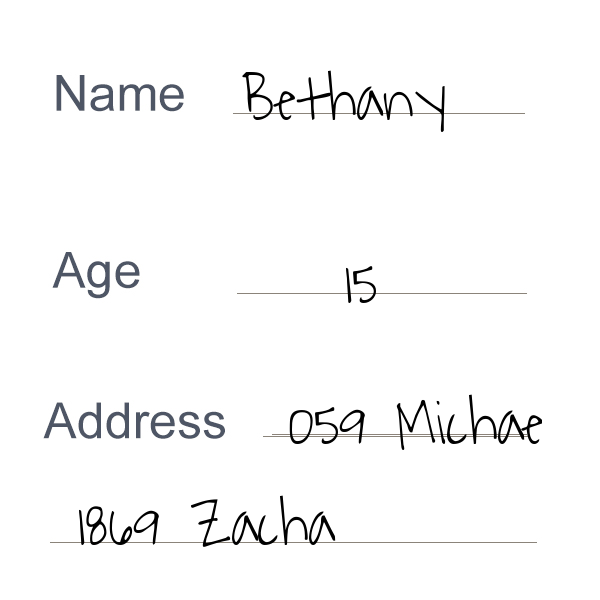 Name Bethany
Age 15
Address 059 Michae
1869 Zacha